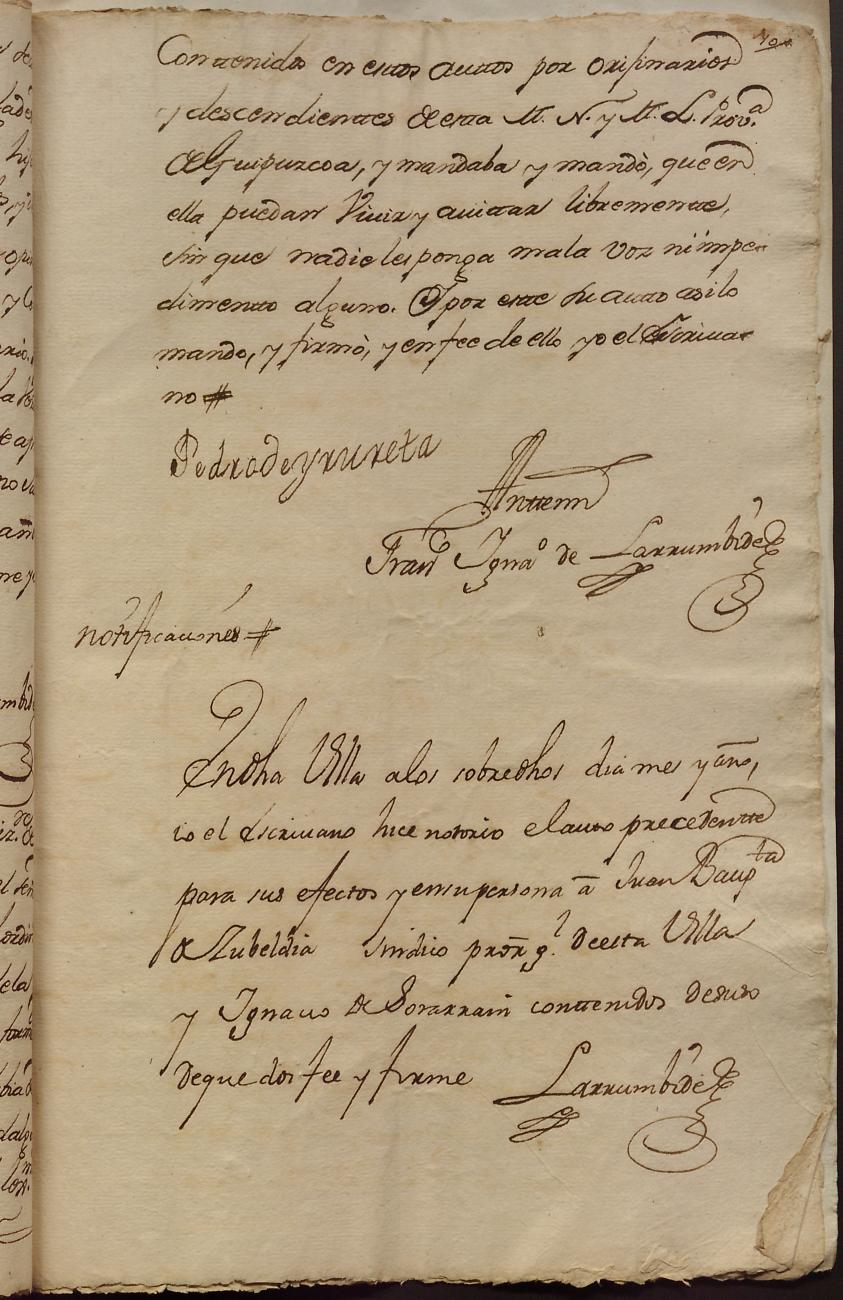 Conttenidos en estos auttos por orijinarios
y descendienttes de esta M. N. y M. L. Prov.ª
de Guipuzcoa, y mandaba y mandò, que en
ella puedan Vivir y avittar libremente,
sin que nadie les ponga mala voz ni impe-
dimento alguno. Y por este su autto asi lo
mando, y firmò, y en fee de ello yo el Escriva-
no #
Pedro de yrureta
Antte mi
Fran.co Igna.º de Larrumbide
notificaciones #
En dha Villa a los sobredhos dia mes y año,
io el escrivano hice notorio el auto precedentte
para sus efectos y en su persona â Juan Baup.ta
de Zubeldia sindico pror g.l de esta Villa
y Ignacio de Sorarrain conttenidos de suso
de que doi fee y firme Larrumbide